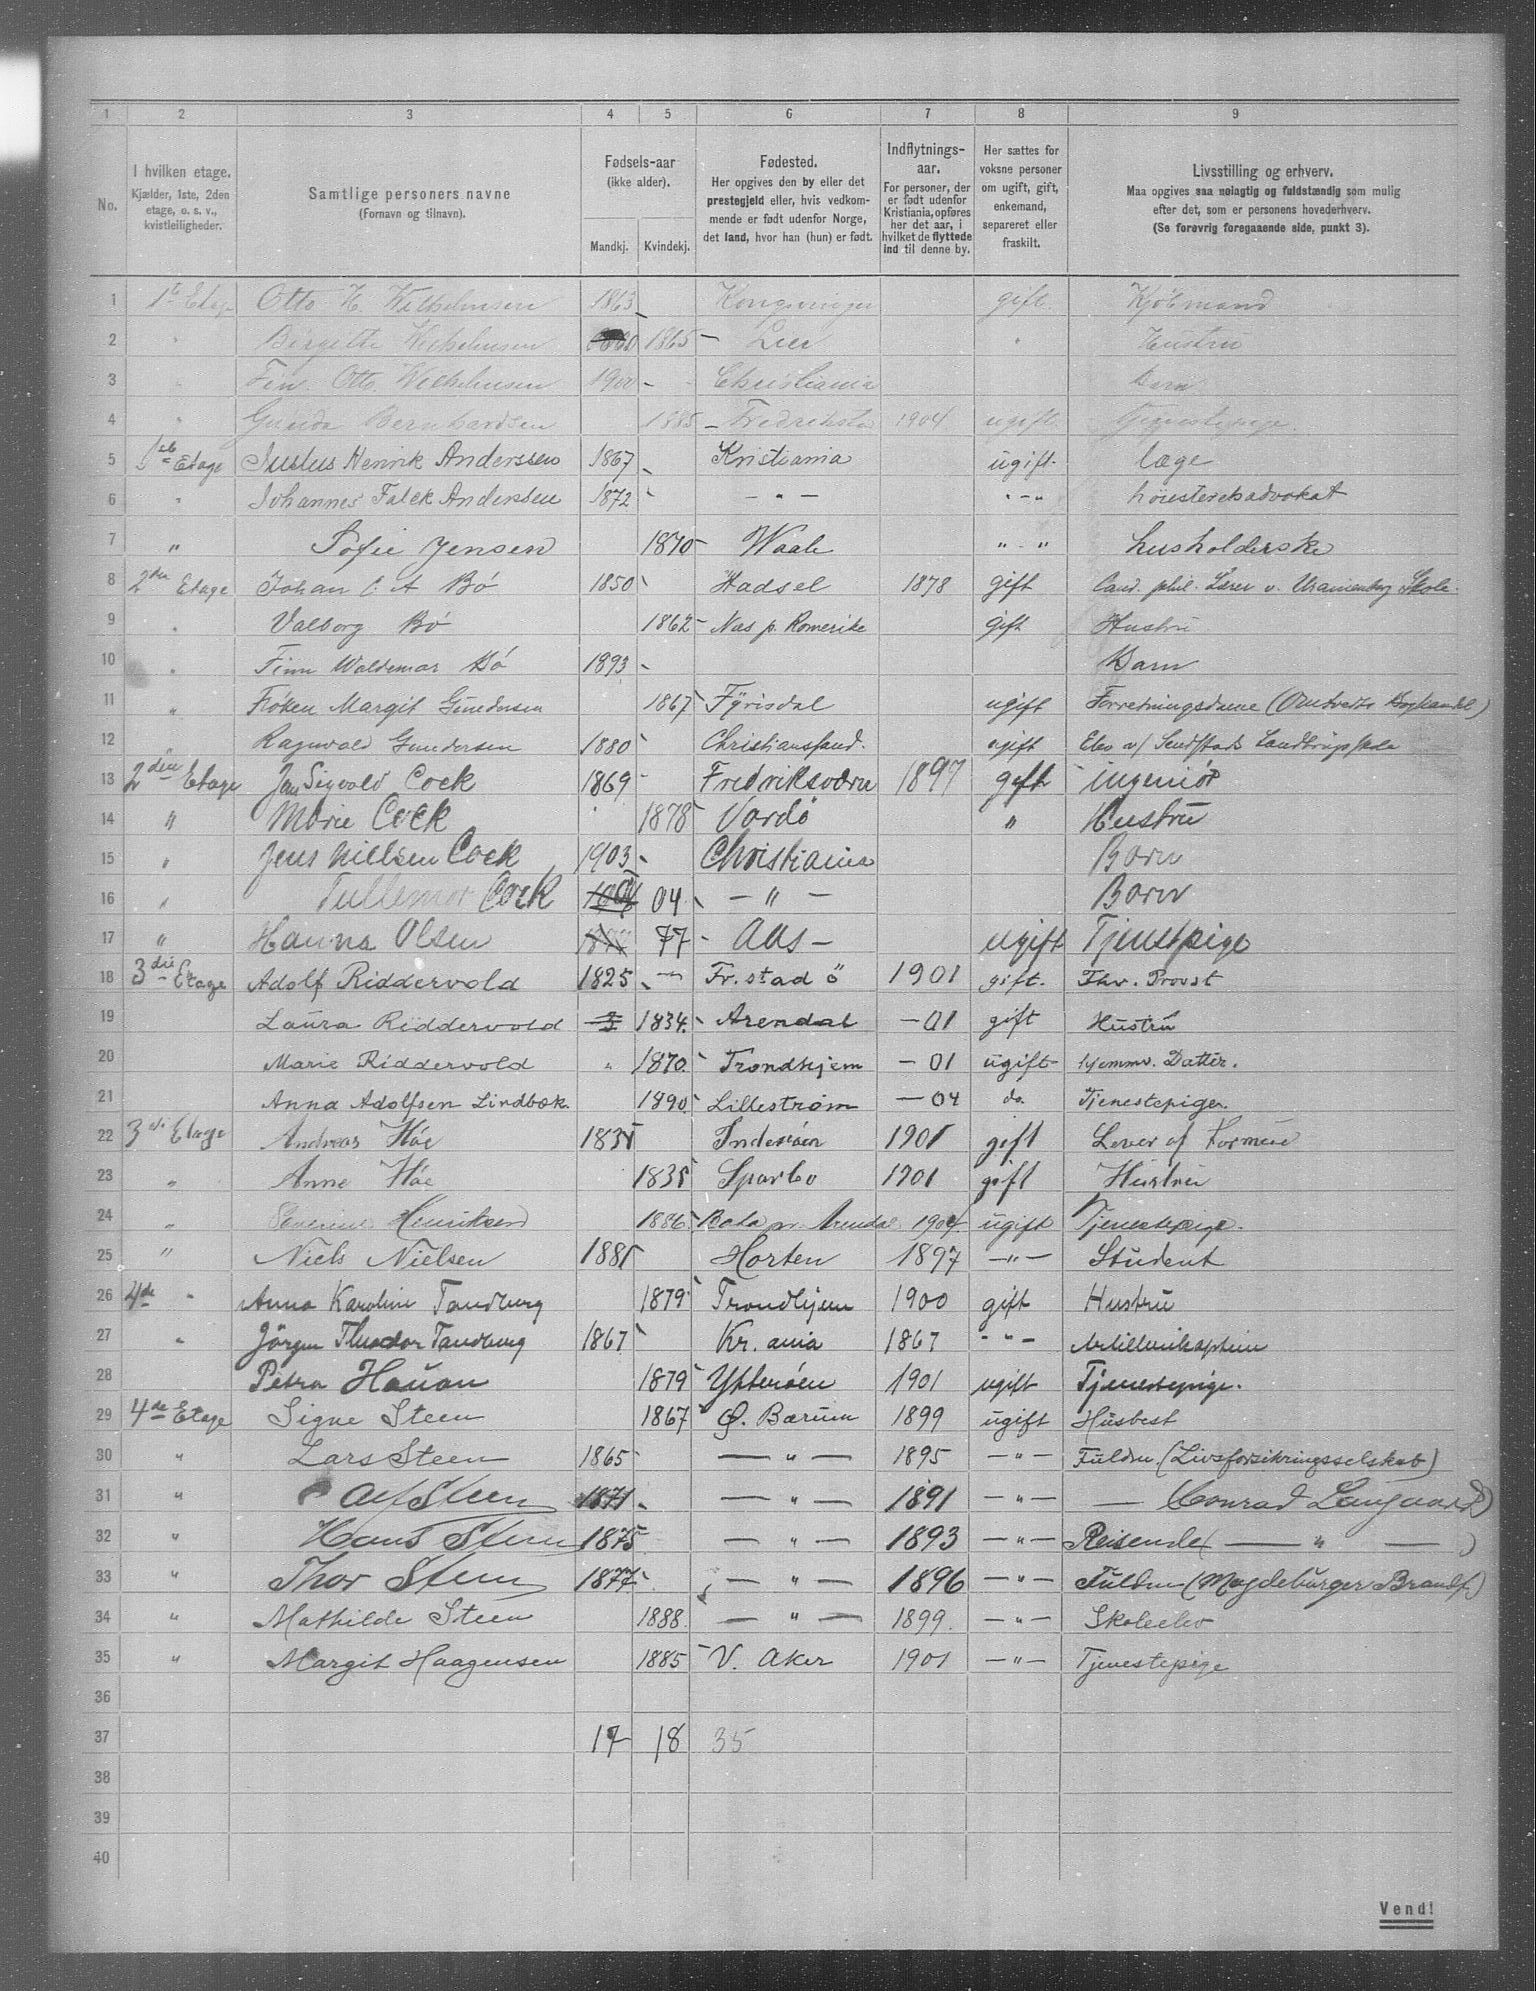 1 2 3 4 5 6 7 8 9
No. I hvilken etage. Kjælder, 1ste, 2den etage, o. s. v., kvistleiligheder. Samtlige personers navne (Fornavn og tilnavn). Fødsels-aar (ikke alder). Mandkj. Kvindekj. Fødested. Her opgives den by eller det prestegjeld eller, hvis vedkommende er født udenfor Norge, det land, hvor han (hun) er født. Indflytnings-aar. For personer, der er født udenfor Kristiania, opføres her det aar, i hvilket de flyttede ind til denne by. Her sættes for voksne personer om ugift, gift, enkemand, separeret eller fraskilt. Livsstilling og erhverv. Maa opgives saa nøiagtig og fuldstændig som mulig efter det, som er personens hovederhverv. (Se forøvrig foregaaende side, punkt 3).
1 1ste Etage Otto H. Wilhelmsen 1863 Kongsvinger gift. Kjöbmand
2 " Birgitte Wilhelmsen 1865 – Lier " Hustru
3 " Finn Otto Wilhelmsen 1900 – Christiania Barn
4 " Gunda Bernhardsen 1885 – Fredrikstad 1904 ugift Tjenestepige.
5 1ste Etage Justus Henrik Anderssen 1867 Kristiania ugift. læge
6 " Johannes Falck Andersen 1872 – " – " – " høiesteretsadvokat
7 " Sofie Jensen 1870 Waale " – " husholderske
8 2den Etage Johan C. A Bö 1850 Hadsel 1878 gift Cand. phil. Lærer v. Uranienborg Skole.
9 " Valborg Bö 1862 Næs p. Romerike gift Hustru
10 " Finn Waldemar Bö 1893 Barn
11 " Frøken Margit Gundersen 1867 Fyrisdal ugift Forretningsdame (Omtvedts Boghandel)
12 " Ragnvald Gundersen 1880 Christianssand. ugift Elev v/ Landbrugsskole
13 2den Etage Jan Sigvald Cock 1869 Fredriksværn 1897 gift ingeniör
14 " Marie Cock 1878 Vardö " Hustru
15 " Jens Nielsen Cock 1903 Christiania Barn
16 " Tullemor Cock 04 – " – Barn
17 " Hanna Olsen 77 Aas – ugift Tjenestpige
18 3die Etage Adolf Riddervold 1825 – Fr.stad ö 1901 gift. Fhv. Provst
19 Laura Riddervold 1834. Arendal – 01 gift Hustru
20 Marie Riddervold " 1870. Trondhjem – 01 ugift – hjemmv. Datter.
21 Anna Adolfsen Lindbæk. 1890 Lilleström – 04 do. Tjenestepige.
22 3die Etage Andreas Høe 1835 Inderöen 1901 gift Lever af Formue
23 " Anne Høe 1835 Sparbo 1901 gift Hustru
24 " Severine Henriksen 1886 pr. Arendal 1904. ugift Tjenestepige.
25 " Niels Nielsen 1881 Horten 1897 – " – Student
26 4de " Anna Karoline Tandberg 1879 Trondhjem 1900 gift Hustru
27 " Jörgen Theodor Tandberg 1867 Kr.ania 1867 – " – Artillerikaptein
28 Petra Hauan 1879 Ytteröen 1901 ugift Tjenestepige.
29 4de Etage Signe Steen 1867 Ø. Bærum 1899 ugift Husbest
30 " Lars Steen 1865 – " – 1895 – " – Fuldm. (Livsforsikringsselskab)
31 " Alf Steen 1871 – " – 1891 – " – — (Conrad Langaard)
32 " Hans Steen 1875 – " – 1893 – " – Reisende ( — " — )
33 " Thor Steen 1877 – " – 1896 – " – Fuldm (Magdeburger Brandf.)
34 " Mathilde Steen 1888. – " – 1899. – " – Skoleelev
35 " Margit Haagensen 1885 V. Aker 1901 – " – Tjenestepige
36
37 17 18 35
38
39
40
Vend!